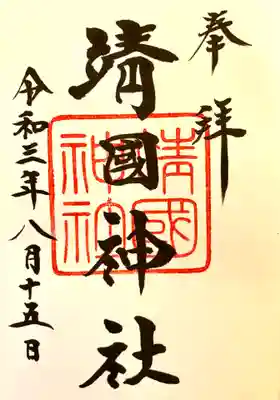 奉拝
靖國神社
靖國
神社
令和三年八月十五日